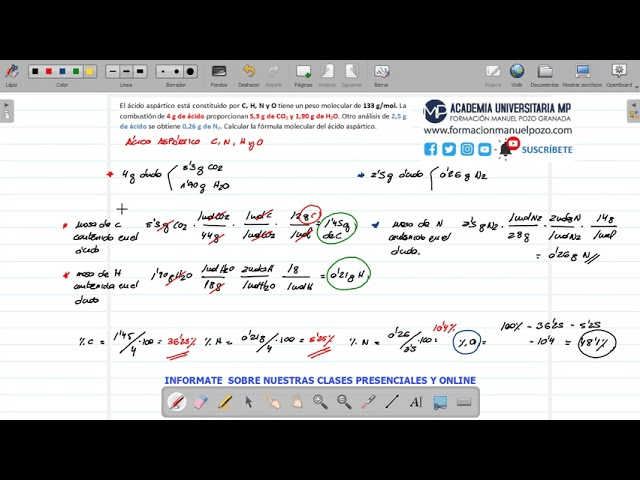 Lápiz
Color
Línea
Páginas
Deshacer
Borradores
Fondos
Web
Documentos
Mostrar escritorio
OpenBoard
El ácido aspártico está constituido por C, H, N y O tiene un peso molecular de 133 g/mol. La
combustión de 4 g de ácido proporcionan 5,3 g de CO₂ y 1,90 g de H₂O. Otro análisis de 2,5 g
de ácido se obtiene 0,26 g de N₂. Calcular la fórmula molecular del ácido aspártico.
ACADEMIA UNIVERSITARIA MP
FORMACIÓN MANUEL POZO GRANADA
www.formacionmanuelpozo.com
SUSCRÍBETE
C, N, H y O
4g ácido
5'3g CO2
1'90g H2O
2'5g ácido
0'26g N2
masa de C
contenida en el
ácido
5'3g CO2 · 1mol CO2/44g · 1mol C/1mol CO2 · 12g C/1mol = 1'45g de C
masa de N
contenida en el
ácido.
1mol N2/28g · 2mol N/1mol N2 · 14g/1mol
= 0'26g N
masa de H
contenida en el
ácido
1'90g H2O · 1mol H2O/18g · 2mol H/1mol H2O · 1g/1mol H = 0'21g H
% C = 1'45/4 · 100 = 36'25%
% H = 0'21g/4 · 100 = 5'25%
% N = 0'26/2'5 · 100 = 10'4%
% O = 100% - 36'25 - 5'25
- 10'4 = 48'1%
INFORMATE SOBRE NUESTRAS CLASES PRESENCIALES Y ONLINE